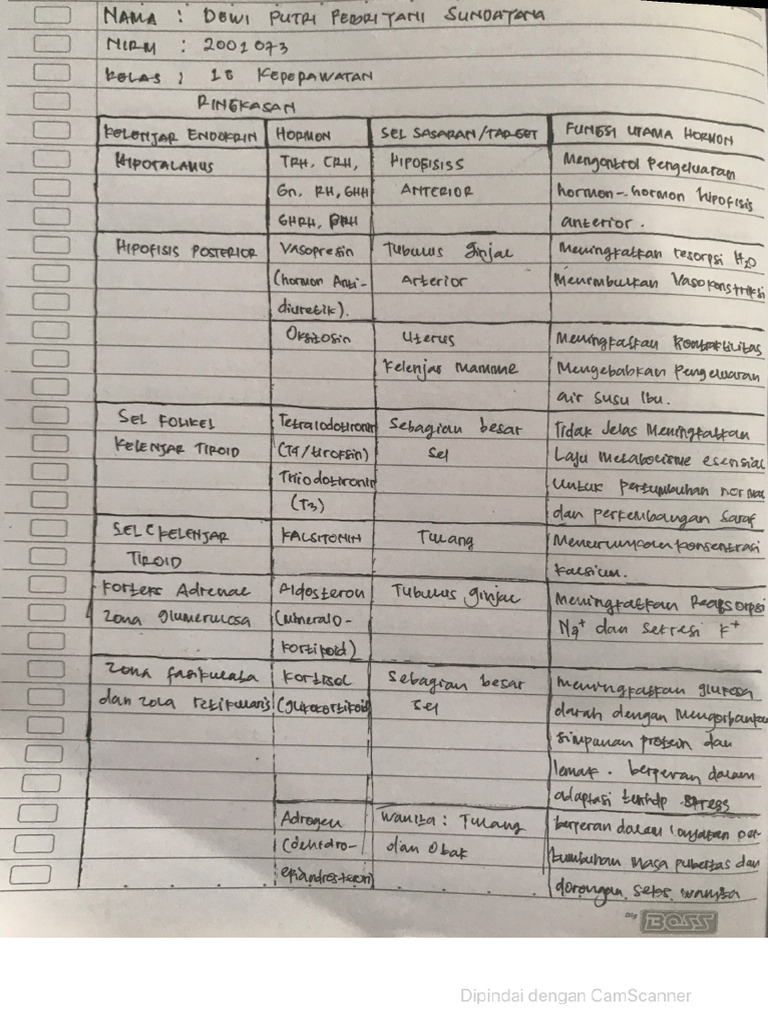 NAMA : DEWI PUTRI PEBRITANI SUNDAYANA
NIRM : 2001073
KELAS : 1B KEPERAWATAN
RINGKASAN
KELENJAR ENDOKRIN | HORMON | SEL SASARAN/TARGET | FUNGSI UTAMA HORMON
HIPOTALAMUS | TRH, CRH, | HIPOFISISS | Mengontrol Pengeluaran
Gn. RH, GHH | ANTERIOR | hormon-hormon hipofisis
GHRH, PRH | anterior.
HIPOFISIS POSTERIOR | Vasopresin | Tubulus ginjal | Meningkatkan resorpsi H2O
(hormon Anti- | Arterior | Menimbulkan Vasokonstriksi
diuretik).
Oksitosin | Uterus | Meningkatkan Kontraktilitas
Kelenjar Mamme | Mengebabkan Pengeluaran
air susu Ibu.
SEL FOLIKEL | Tetraiodotironin | Sebagian besar | Tidak Jelas Meningkatkan
KELENJAR TIROID | (T4/tiroksin) | Sel | Laju metabolisme esensial
Triiodotironin | untuk pertumbuhan normal
(T3) | dan perkembangan saraf
SEL C KELENJAR | KALSITONIN | Tulang | Menurunkan konsentrasi
TIROID | kalsium.
Korteks Adrenal | Aldosteron | Tubulus ginjal | Meningkatkan Reabsorpsi
Zona glumerulosa | (Mineralo- | Na+ dan sekresi K+
kortikoid)
Zona fasikulata | Kortisol | Sebagian besar | Meningkatkan glukosa
dan zola retikularis | (glukokortikoid) | Sel | darah dengan Mengorbankan
Simpanan protein dan
lemak. berperan dalam
adaptasi terhdp stress
Adrogen | Wanita : Tulang | berperan dalam lonjakan per-
(dehidro- | dan Otak | tumbuhan masa pubertas dan
epiandrosteron) | dorongan seks wanita
Big BOSS
Dipindai dengan CamScanner